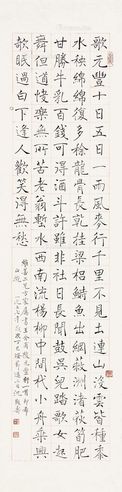 歌元豐十日五日一雨風麥行千里不土連山沒雲皆種黍
水秧綿綿復多稌龍骨長乾挂梁梠鰣魚出網蔽洲渚荻筍肥
甘勝牛乳百錢可得酒斗許雖非社日長聞鼓吳兒踏歌女起
舞但道快樂無所苦老翁塹水西南流楊柳中間杙小舟乘興
欹眠過白下逢人歡笑得無愁